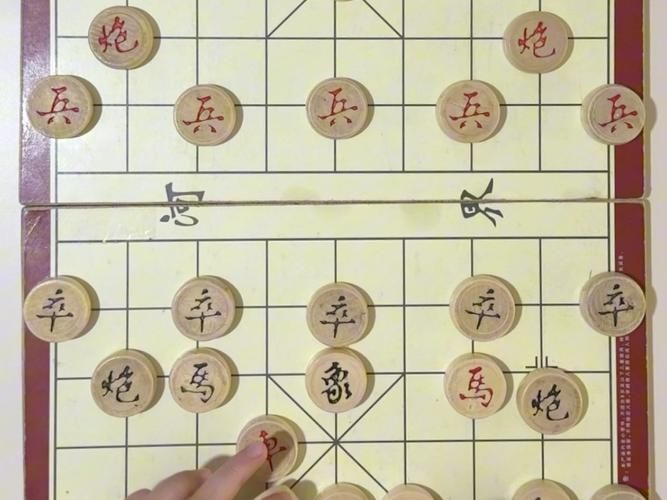 炮 炮
兵 兵 兵 兵 兵
河 界
卒 卒 卒 卒 卒
炮 馬 象 馬 炮
車